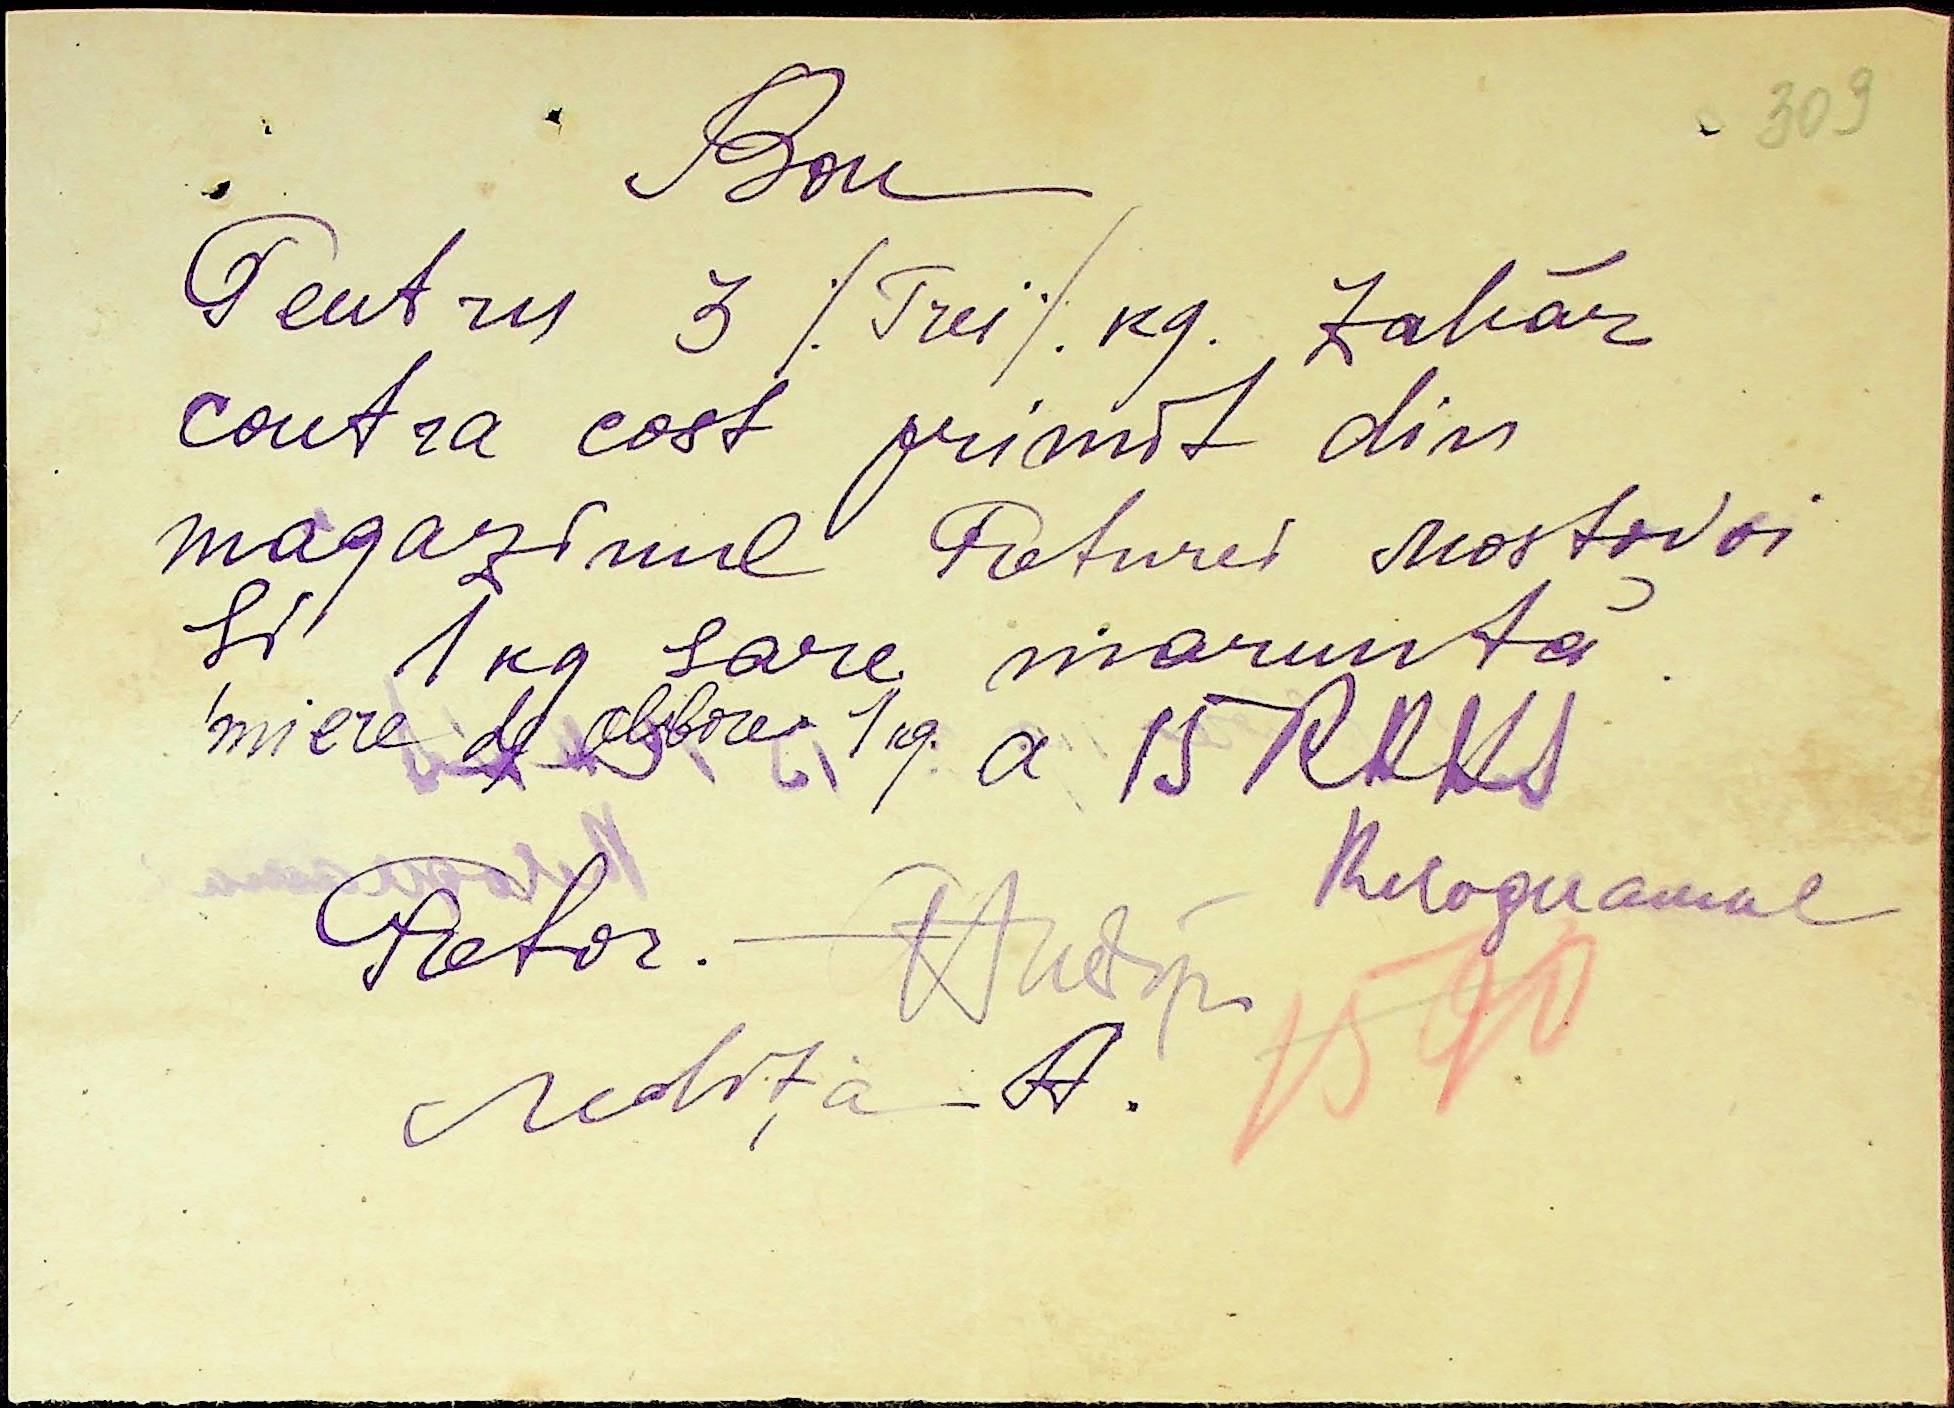 309
Bon
Pentru 3 /. Trei /. kg. Zahăr
contra cost primit din
magazinul Preturei Mostovoi
Si 1 kg sare maruntă.
miere de 1 kg. a 15 RKKS
Kilogramul
Pretor.
A.
15